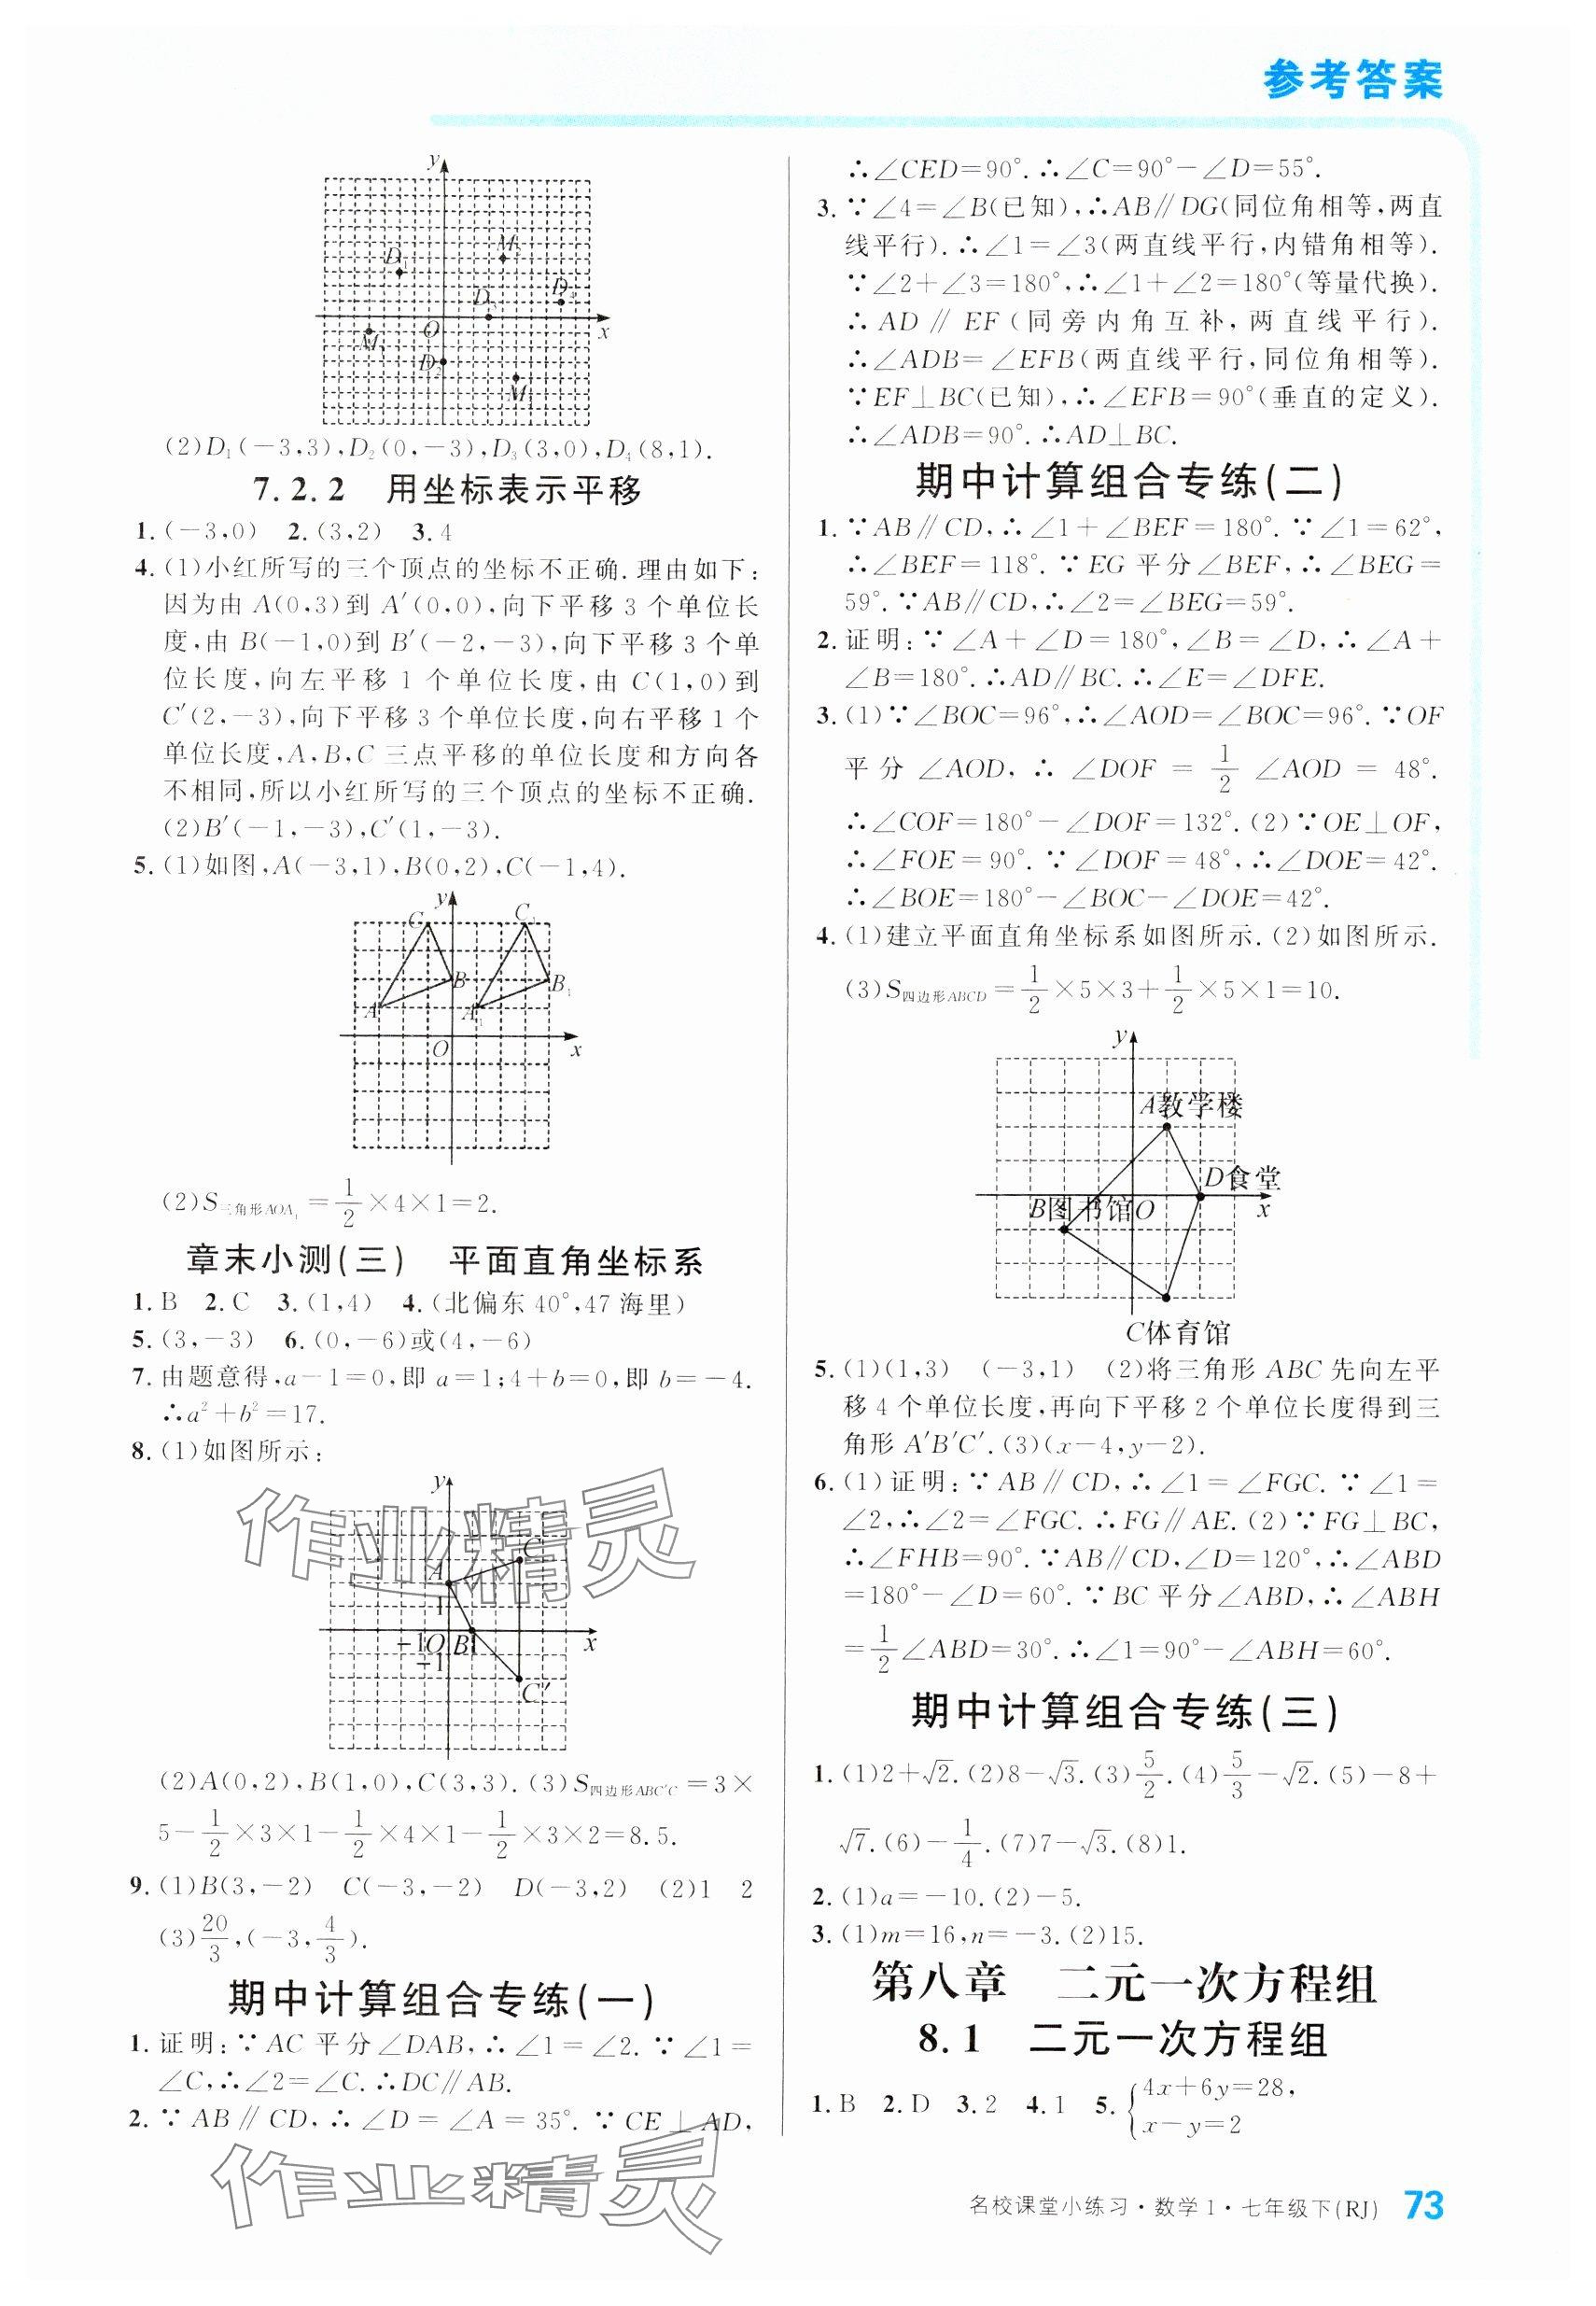 参考答案
y
M₂
D₁
D₄
D₃
O
x
M₃
D₂
M₁
(2)D₁(−3,3),D₂(0,−3),D₃(3,0),D₄(8,1).
7.2.2 用坐标表示平移
1.(−3,0) 2.(3,2) 3.4
4.(1)小红所写的三个顶点的坐标不正确.理由如下:
因为由 A(0,3)到 A′(0,0),向下平移 3 个单位长
度,由 B(−1,0)到 B′(−2,−3),向下平移 3 个单
位长度,向左平移 1 个单位长度,由 C(1,0)到
C′(2,−3),向下平移 3 个单位长度,向右平移 1 个
单位长度,A,B,C 三点平移的单位长度和方向各
不相同,所以小红所写的三个顶点的坐标不正确.
(2)B′(−1,−3),C′(1,−3).
5.(1)如图,A(−3,1),B(0,2),C(−1,4).
y
C C₁
B B₁
A A₁
O x
(2)S三角形AOA₁=1/2×4×1=2.
章末小测(三) 平面直角坐标系
1.B 2.C 3.(1,4) 4.(北偏东 40°,47 海里)
5.(3,−3) 6.(0,−6)或(4,−6)
7.由题意得,a−1=0,即 a=1;4+b=0,即 b=−4.
∴a²+b²=17.
8.(1)如图所示:
y
C
A
1
−1 O B 1 x
−1
C′
(2)A(0,2),B(1,0),C(3,3).(3)S四边形ABC′C=3×
5−1/2×3×1−1/2×4×1−1/2×3×2=8.5.
9.(1)B(3,−2) C(−3,−2) D(−3,2) (2)1 2
(3)20/3,(−3,4/3).
期中计算组合专练(一)
1.证明:∵AC 平分∠DAB,∴∠1=∠2.∵∠1=
∠C,∴∠2=∠C.∴DC∥AB.
2.∵AB∥CD,∴∠D=∠A=35°.∵CE⊥AD,
∴∠CED=90°.∴∠C=90°−∠D=55°.
3.∵∠4=∠B(已知),∴AB∥DG(同位角相等,两直
线平行).∴∠1=∠3(两直线平行,内错角相等).
∵∠2+∠3=180°,∴∠1+∠2=180°(等量代换).
∴AD∥EF(同旁内角互补,两直线平行).
∴∠ADB=∠EFB(两直线平行,同位角相等).
∵EF⊥BC(已知),∴∠EFB=90°(垂直的定义).
∴∠ADB=90°.∴AD⊥BC.
期中计算组合专练(二)
1.∵AB∥CD,∴∠1+∠BEF=180°.∵∠1=62°,
∴∠BEF=118°.∵EG 平分∠BEF,∴∠BEG=
59°.∵AB∥CD,∴∠2=∠BEG=59°.
2.证明:∵∠A+∠D=180°,∠B=∠D,∴∠A+
∠B=180°.∴AD∥BC.∴∠E=∠DFE.
3.(1)∵∠BOC=96°,∴∠AOD=∠BOC=96°.∵OF
平分∠AOD,∴∠DOF=1/2∠AOD=48°.
∴∠COF=180°−∠DOF=132°.(2)∵OE⊥OF,
∴∠FOE=90°.∵∠DOF=48°,∴∠DOE=42°.
∴∠BOE=180°−∠BOC−∠DOE=42°.
4.(1)建立平面直角坐标系如图所示.(2)如图所示.
(3)S四边形ABCD=1/2×5×3+1/2×5×1=10.
y
A教学楼
D食堂
B图书馆 O x
C体育馆
5.(1)(1,3) (−3,1) (2)将三角形 ABC 先向左平
移 4 个单位长度,再向下平移 2 个单位长度得到三
角形 A′B′C′.(3)(x−4,y−2).
6.(1)证明:∵AB∥CD,∴∠1=∠FGC.∵∠1=
∠2,∴∠2=∠FGC.∴FG∥AE.(2)∵FG⊥BC,
∴∠FHB=90°.∵AB∥CD,∠D=120°,∴∠ABD
=180°−∠D=60°.∵BC 平分∠ABD,∴∠ABH
=1/2∠ABD=30°.∴∠1=90°−∠ABH=60°.
期中计算组合专练(三)
1.(1)2+√2.(2)8−√3.(3)5/2.(4)5/3−√2.(5)−8+
√7.(6)−1/4.(7)7−√3.(8)1.
2.(1)a=−10.(2)−5.
3.(1)m=16,n=−3.(2)15.
第八章 二元一次方程组
8.1 二元一次方程组
1.B 2.D 3.2 4.1 5.{4x+6y=28,
x−y=2
作业精灵
作业精灵
名校课堂小练习·数学1·七年级下(RJ) 73